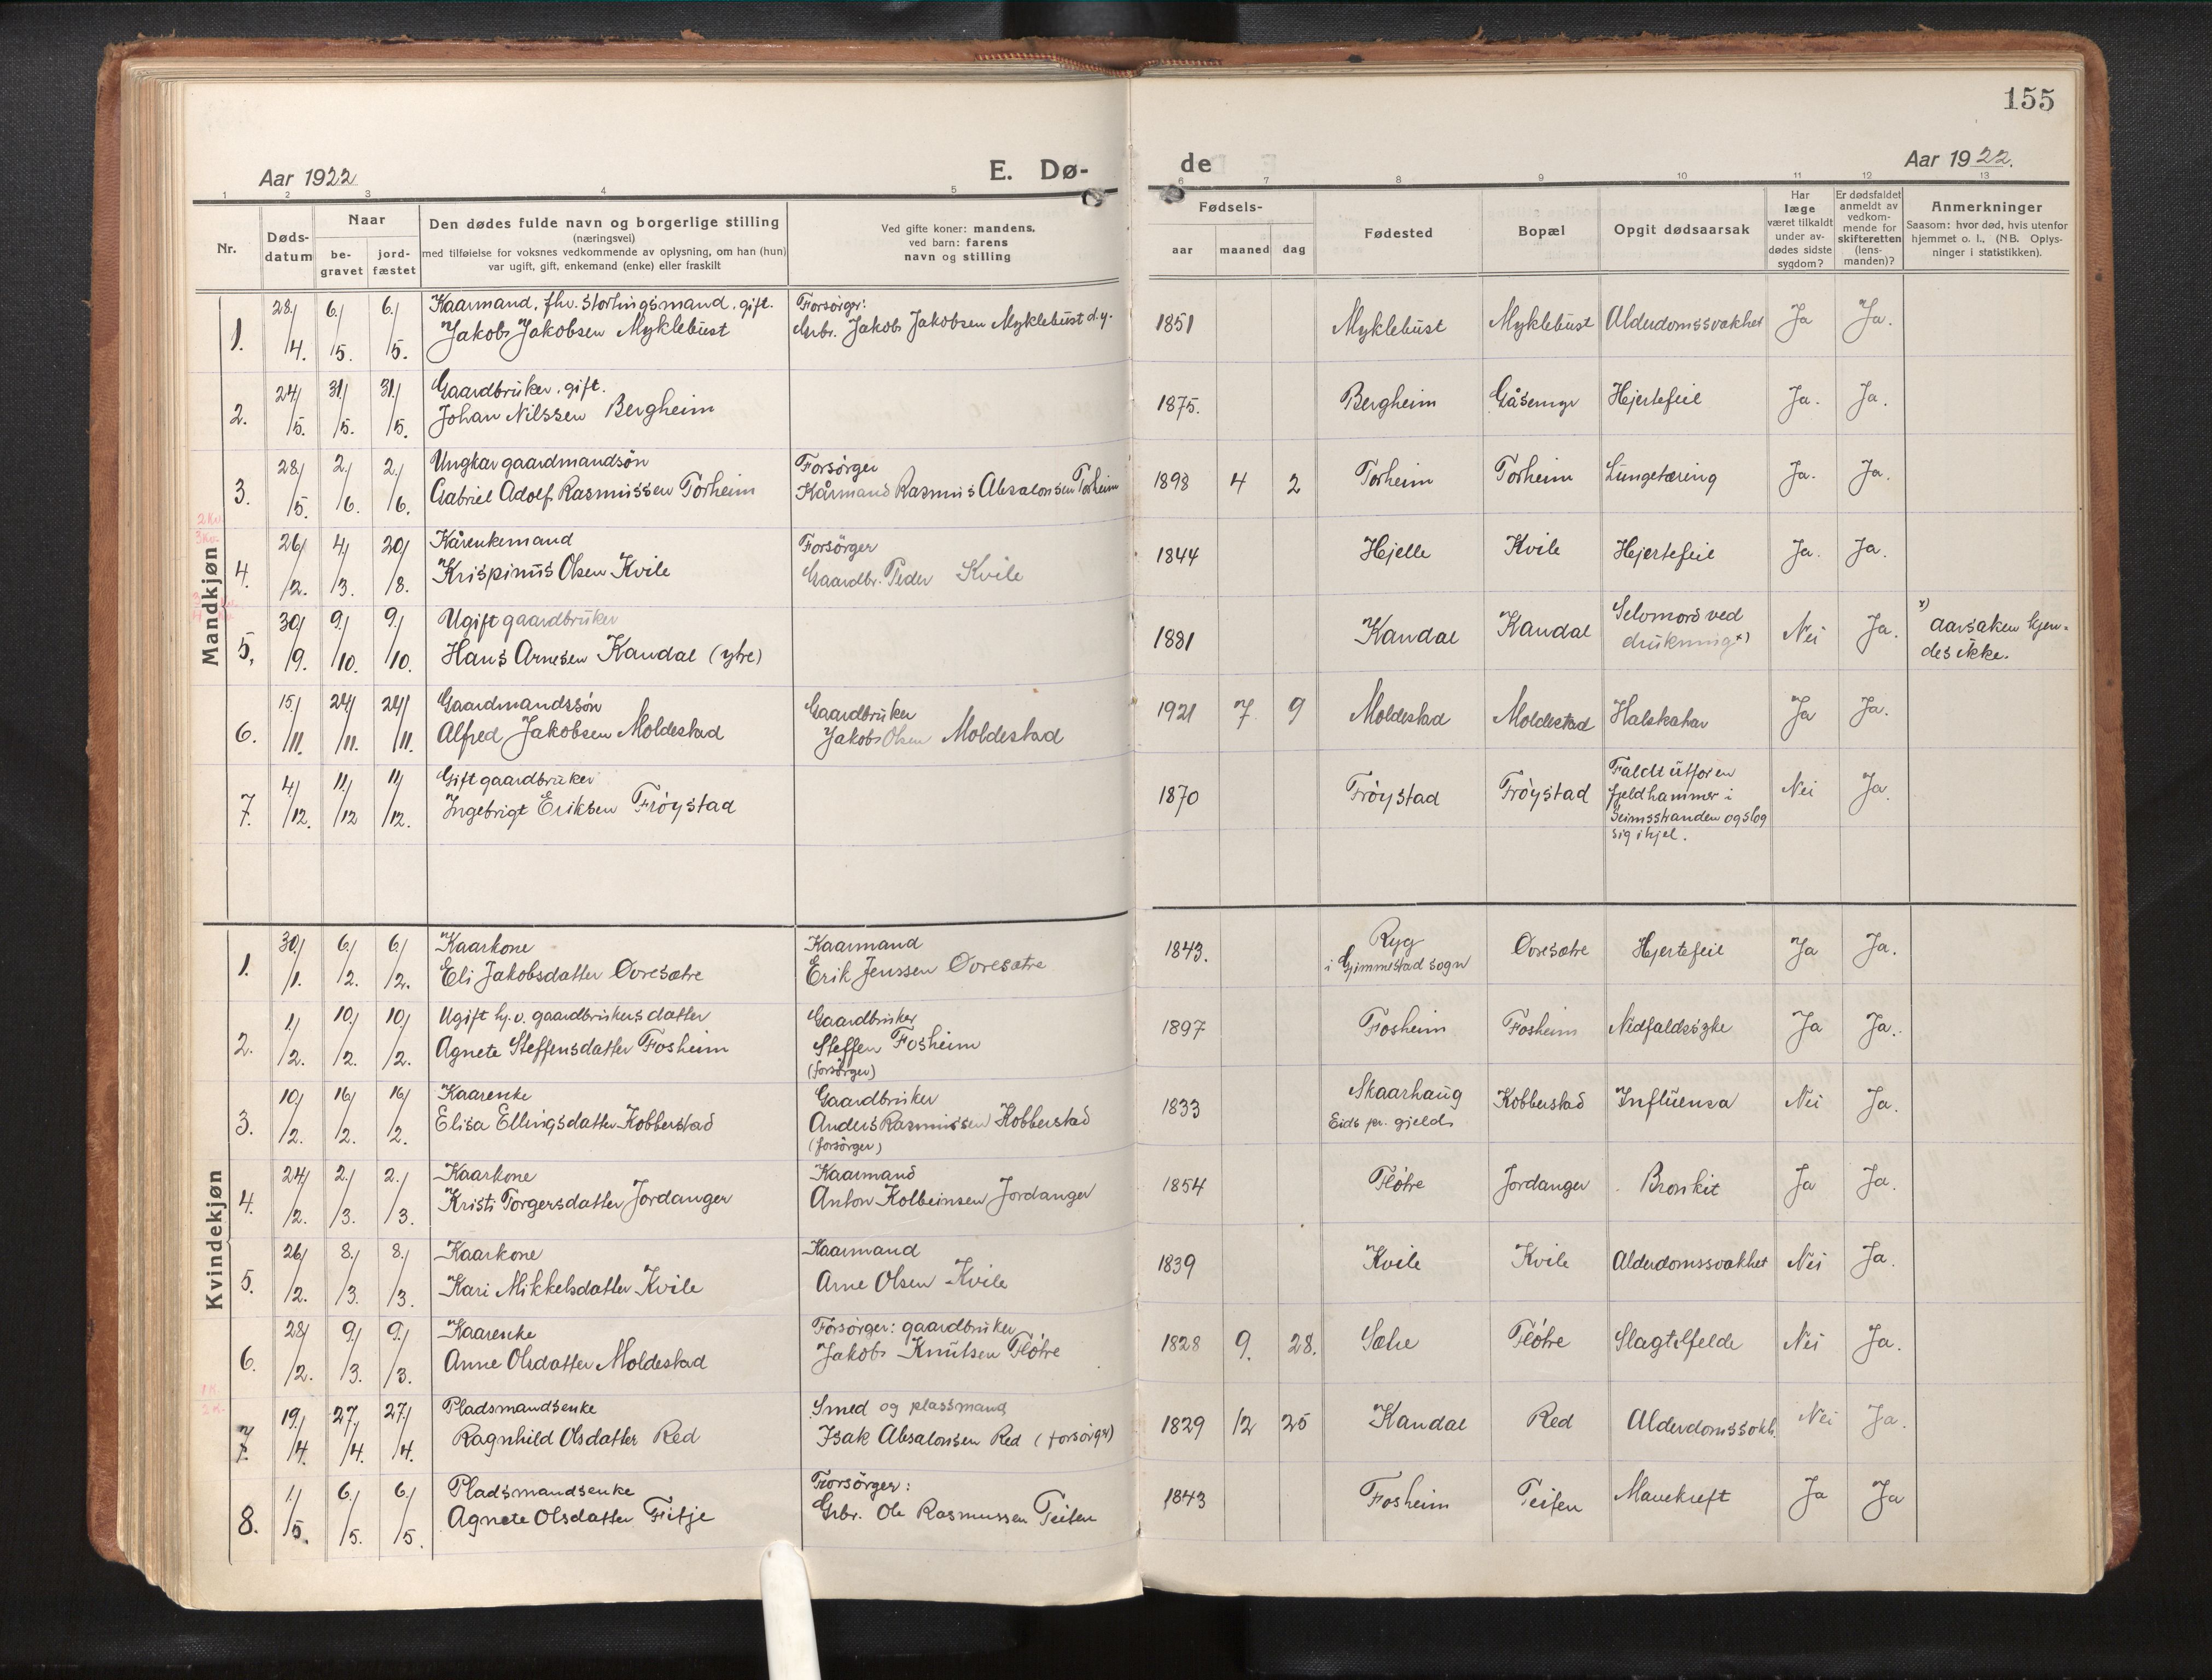 155
Aar 1922
E. Dø-
de
Aar 1922.
1 2 3 4 5 6 7 8 9 10 11 12 13
Nr.
Døds-
datum
Naar
be-
gravet
jord-
fæstet
Den dødes fulde navn og borgerlige stilling
(næringsvei)
med tilføielse for voksnes vedkommende av oplysning, om han (hun)
var ugift, gift, enkemand (enke) eller fraskilt
Ved gifte koner: mandens,
ved barn: farens
navn og stilling
Fødsels-
aar maaned dag
Fødested
Bopæl
Opgit dødsaarsak
Har
læge
været tilkaldt
under av-
dødes sidste
sygdom?
Er dødsfaldet
anmeldt av
vedkom-
mende for
skifteretten
(lens-
manden)?
Anmerkninger
Saasom: hvor død, hvis utenfor
hjemmet o. l., (NB. Oplys-
ninger i statistikken).
Mandkjøn
1. 28/4. 6/5. 6/5. Kaarmand, fhv. stortingsmand, gift.
Jakob Jakobsen Myklebust
Forsørger:
Grbr. Jakob Jakobsen Myklebust d.y.
1851 Myklebust Myklebust Alderdomssvakhet Ja Ja.
2. 24/5. 31/5. 31/5. Gaardbruker, gift.
Johan Nilssen Bergheim
1875. Bergheim Gåsemyr Hjertefeil Ja. Ja.
3. 28/5. 2/6. 2/6. Ungkar gaardmandsøn
Gabriel Adolf Rasmussen Torheim
Forsørger
Kårmand Rasmus Absalonsen Torheim
1898 4 2 Torheim Torheim Lungetæring Ja. Ja.
4. 26/2. 4/3. 20/8. Kårenkemand
Krispinus Olsen Kvile
Forsørger
Gaardbr. Peder Kvile
1844 Hjelle Kvile Hjertefeil Ja. Ja.
5. 30/9. 9/10. 9/10. Ugift gaardbruker
Hans Arnesen Kandal (ytre)
1881 Kandal Kandal Selvmord ved
drukning x) Nei Ja.
x) aarsaken kjen-
des ikke.
6. 15/11. 24/11. 24/11. Gaardmandssøn
Alfred Jakobsen Moldestad
Gaardbruker
Jakob Olsen Moldestad
1921 7 9 Moldestad Moldestad Halskatar Ja Ja.
7. 4/12. 11/12 11/12. Gift gaardbruker
Ingebrigt Eriksen Frøystad
1870 Frøystad Frøystad Faldt utfor en
fjeldhammer i
Seimsstranden og slog
sig ihjel. Nei Ja.
Kvindekjøn
1. 30/1. 6/2. 6/2. Kaarkone
Eli Jakobsdatter Ovresætre
Kaarmand
Erik Jenssen Ovresætre
1843. Ryg
i Gimmestad sogn Ovresætre Hjertefeil Ja Ja.
2. 1/2. 10/2. 10/2. Ugift hj.v. gaardbrukersdatter
Agnete Steffensdatter Fosheim
Gaardbruker
Steffen Fosheim
(forsørger)
1897 Fosheim Fosheim Nedfaldssyke Ja Ja.
3. 10/2. 16/2. 16/2. Kaarenke
Elisa Ellingsdatter Kobberstad
Gaardbruker
Anders Rasmussen Kobberstad
(forsørger)
1833 Skaarhaug
Eids pr. gjeld Kobberstad Influensa Nei Ja.
4. 24/2. 2/3. 2/3. Kaarkone
Kristi Torgersdatter Jordanger
Kaarmand
Anton Kolbeinsen Jordanger
1854 Fløtre Jordanger Bronkit Ja Ja.
5. 26/2. 8/3. 8/3. Kaarkone
Kari Mikkelsdatter Kvile
Kaarmand
Arne Olsen Kvile
1839 Kvile Kvile Alderdomssvakhet Nei Ja.
6. 28/2. 9/3. 9/3. Kaarenke
Anne Olsdatter Moldestad
Forsørger: gaardbruker
Jakob Knutsen Fløtre
1828 9. 28. Sætre Fløtre Slagtilfelde Nei Ja.
7. 19/4. 27/4. 27/4. Pladsmandsenke
Ragnhild Olsdatter Red
Smed og plassmand
Isak Absalonsen Red (forsørger)
1829 12 25 Kandal Red Alderdomssvkh. Nei Ja.
8. 1/5. 6/5. 6/5. Pladsmandsenke
Agnete Olsdatter Fitje
Forsørger:
Grbr. Ole Rasmussen Teiten
1843 Fosheim Teiten Mavekreft Ja Ja